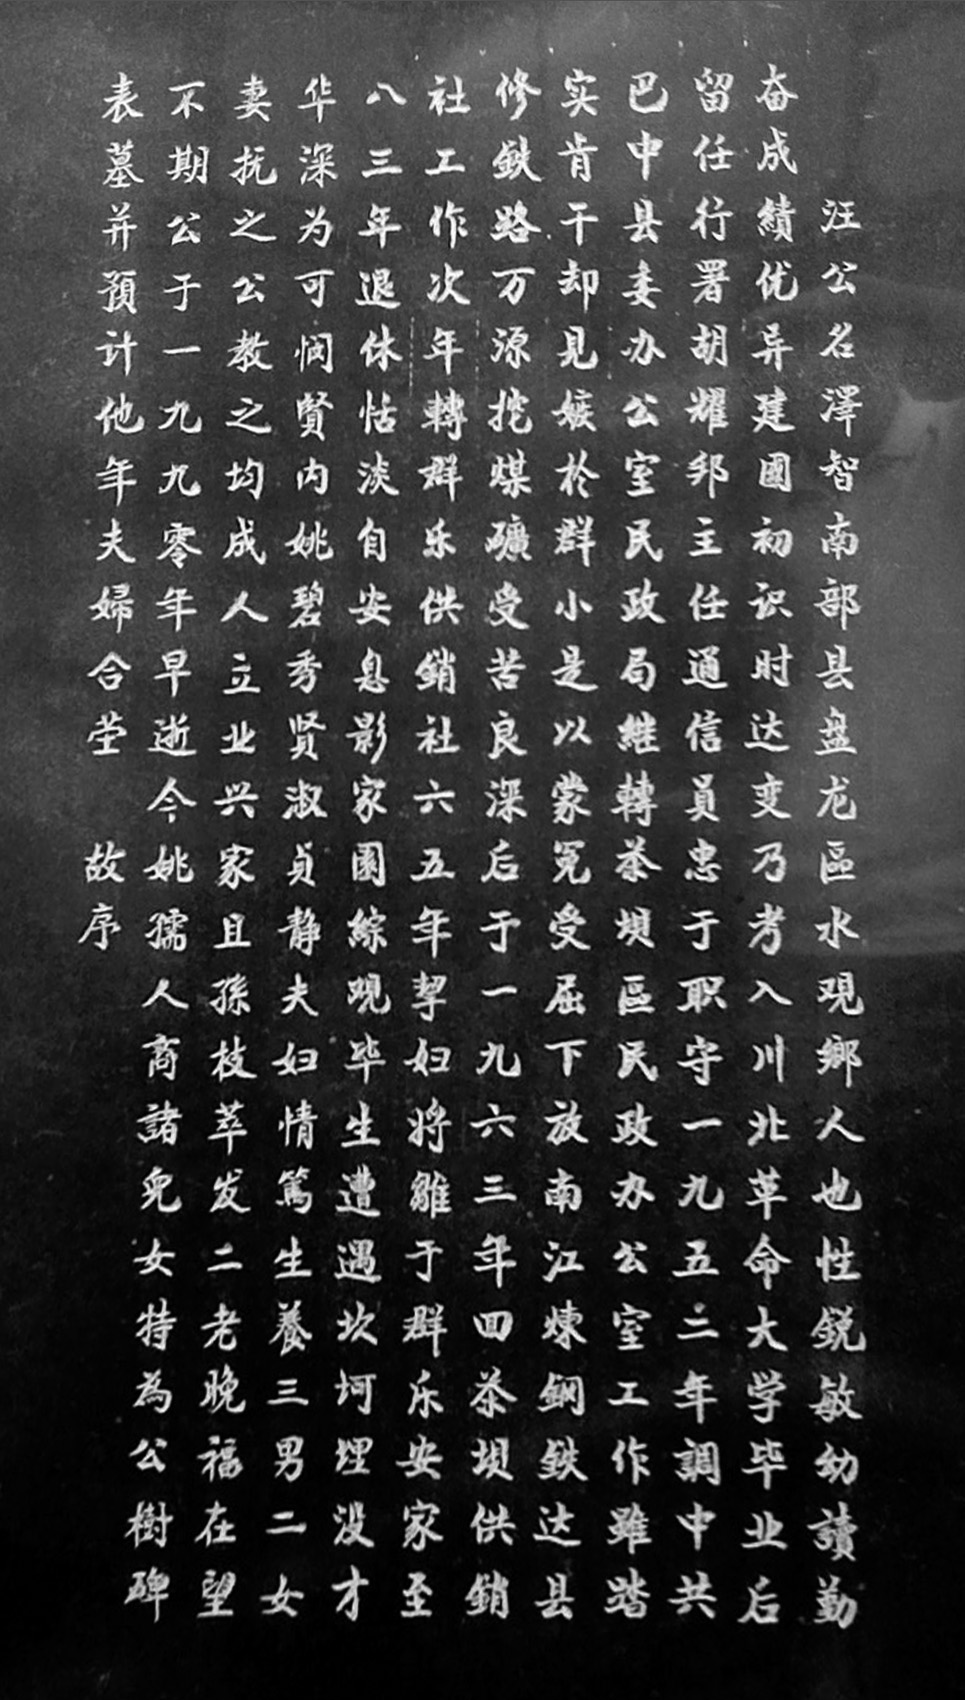 汪公名澤智南部县盘龙區水观鄉人也性锐敏幼讀勤
奋成績优异建國初识时达变乃考入川北革命大学毕业后
留任行署胡耀邦主任通信員忠于职守一九五二年調中共
巴中县委办公室民政局继轉茶坝區民政办公室工作雖踏
实肯干却见嫉於群小是以蒙冤受屈下放南江煉鋼鉄达县
修鉄路万源挖煤礦受苦良深后于一九六三年回茶坝供銷
社工作次年轉群乐供銷社六五年挈妇将雛于群乐安家至
八三年退休恬淡自安息影家園綜观毕生遭遇坎坷埋没才
华深为可悯賢内姚碧秀贤淑贞静夫妇情篤生養三男二女
妻抚之公教之均成人立业兴家且孫枝萃发二老晚福在望
不期公于一九九零年早逝今姚孺人商諸児女特為公樹碑
表墓并預计他年夫婦合茔　故序